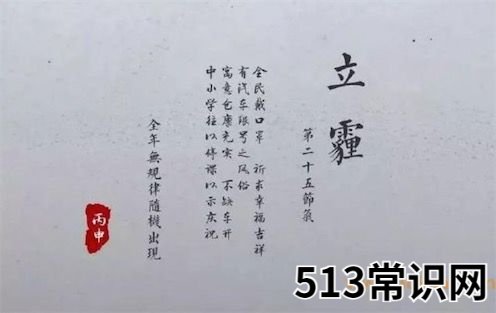 立霾
第二十五節氣
全民戴口罩 祈求幸福吉祥
有汽车限号之风俗
寓意仓廪充实 不缺车开
中小学往以停课以示庆祝
全年無規律隨機出現
丙申
513常识网